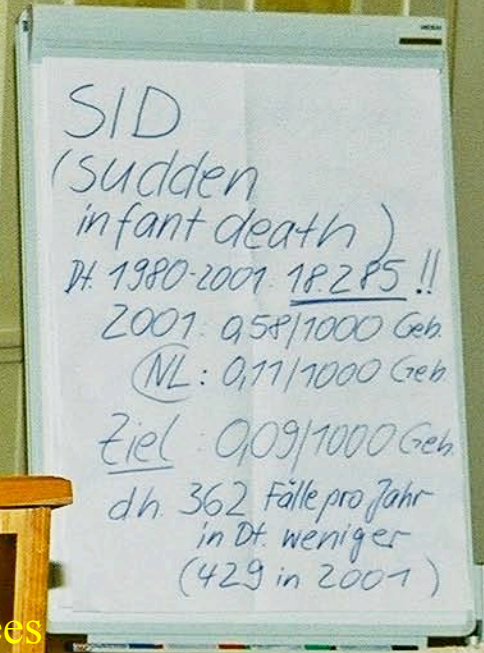 SID
(sudden
infant death)
Dt. 1980-2001: 18.285!!
2001: 0,58/1000 Geb.
NL: 0,11/1000 Geb.
Ziel: 0,09/1000 Geb.
dh. 362 Fälle pro Jahr
in Dt. weniger
(429 in 2001)
ees